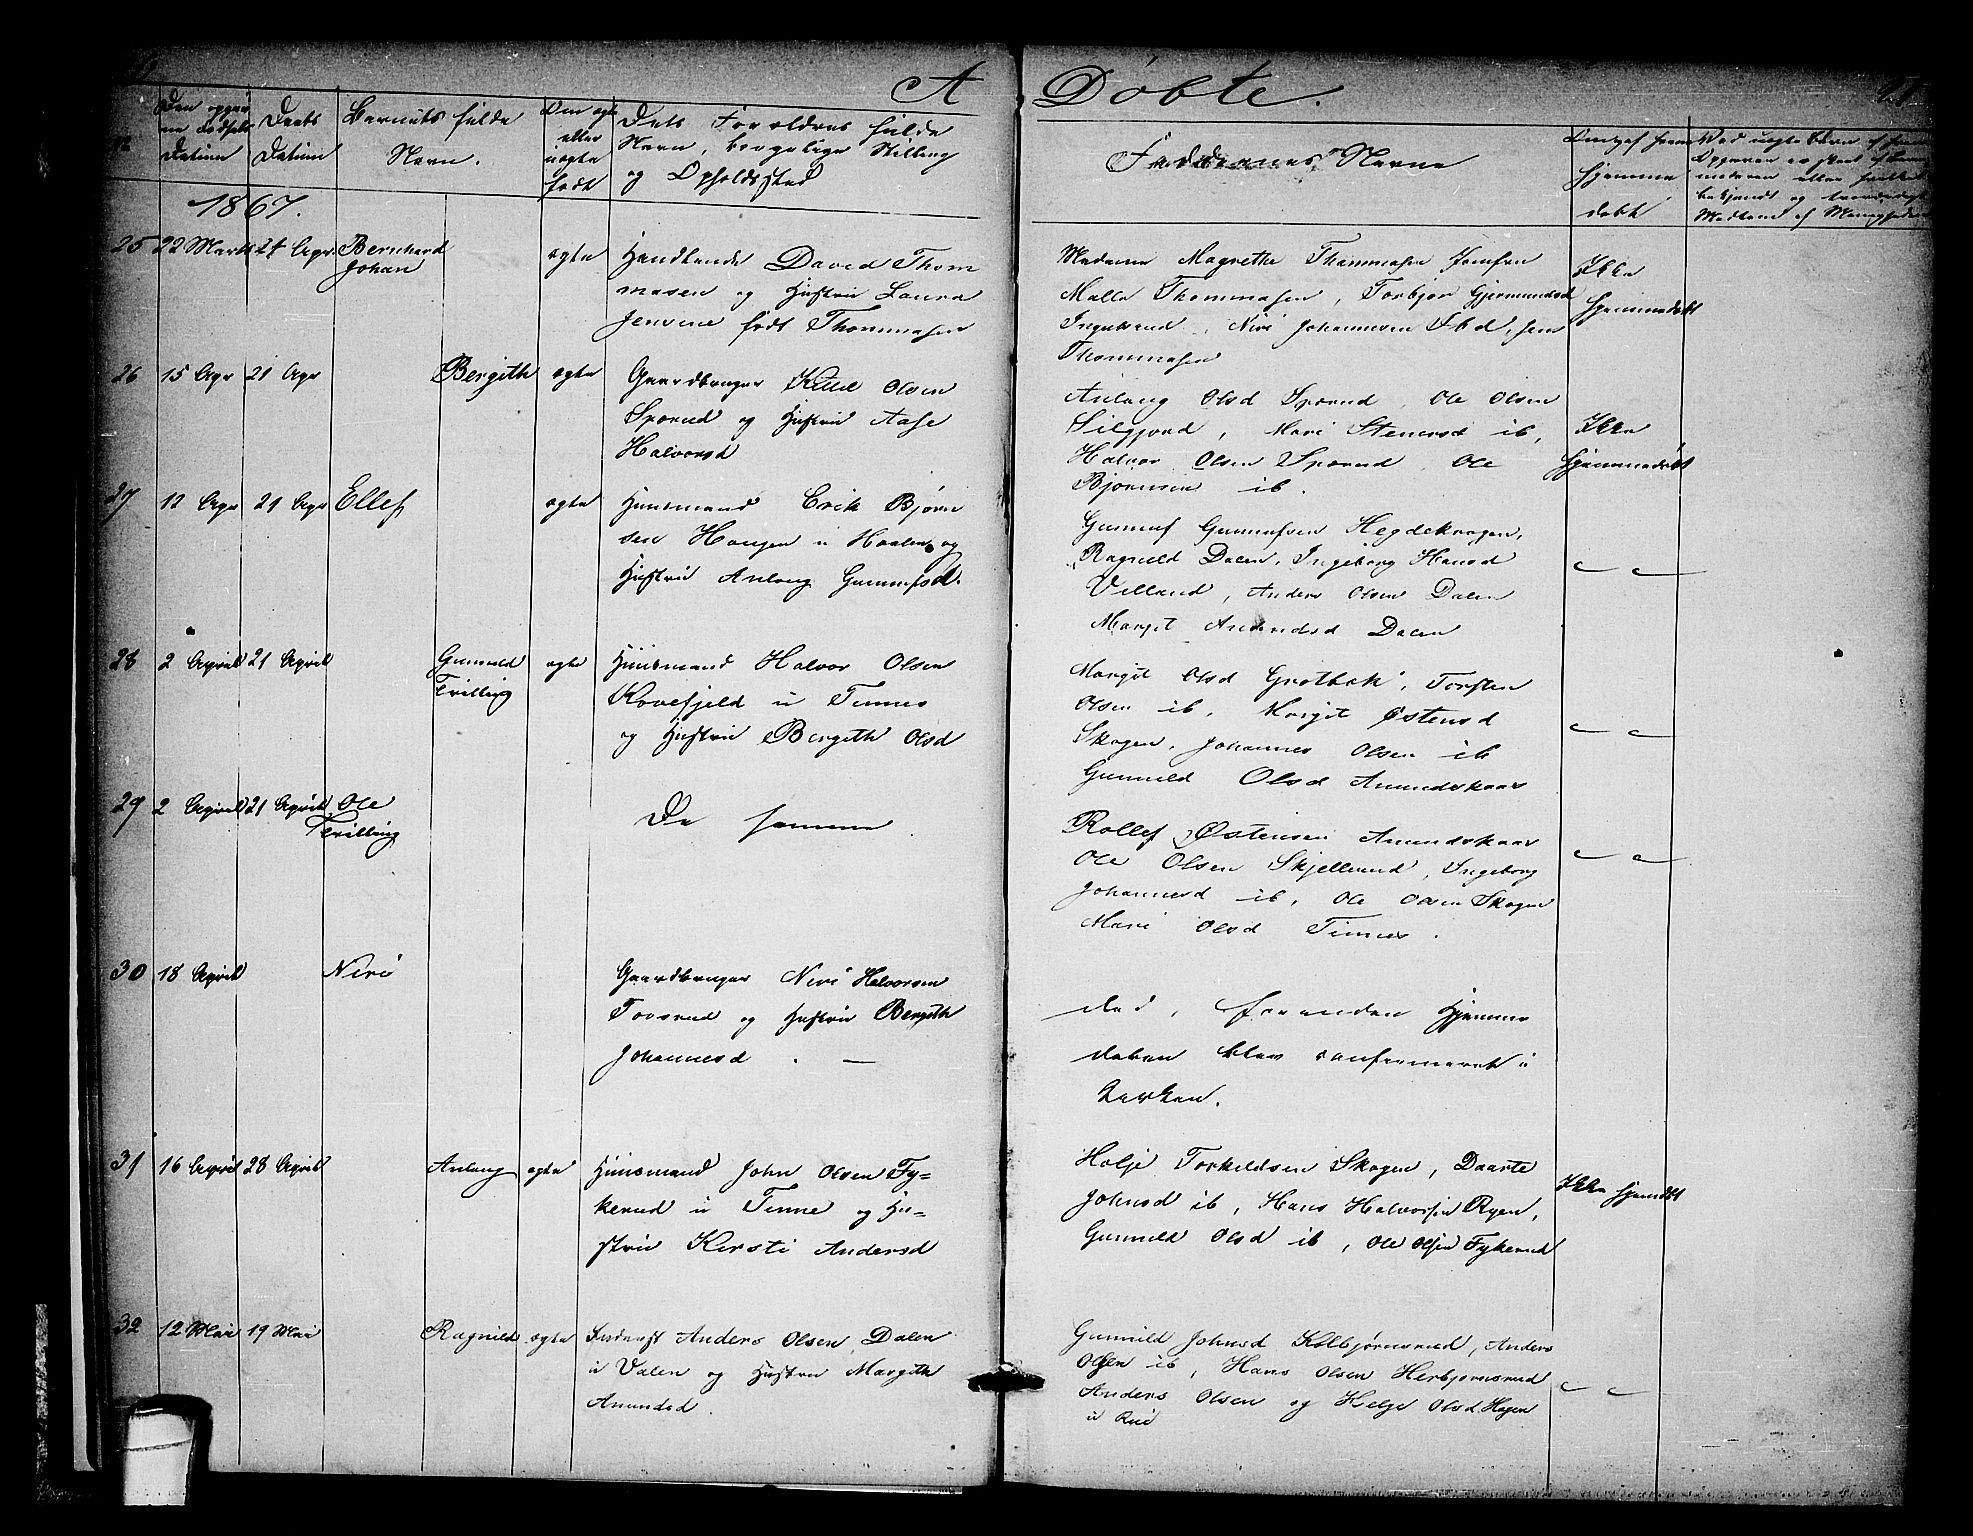 A Döbte.
Den opgiv
ne Fødsels
Datum
Daabs
Datum
Barnets fulde
Navn.
Om ægte
eller
uægte
født
Dets Forældres fulde
Navn, borgelige Stilling
og Opholdssted
Faddernes Navne
hjemme
døbt
1867.
25 22 Marts 21 Apr Bernhard
Johan
ægte
Handlende David Thom
masen og Hustru Laura
Jensine født Thommasen
Madame Magrethe Thommasen Jomfru
Malla Thommasen, Torbjør Gjermundsd
Ingulsrud, Niri Johannesen Ibd,
Thommasen
Ikke
hjemmedøbt
26 15 Apr 21 Apr Bergith ægte
Gaardbruger Kittil Olsen
Sporud og Hustru Aase
Halvorsd
Anlaug Olsd Sporud, Ole Olsen
Silgjord, Mari Stenersd ib,
Halvor Olsen Sporud, Ole
Bjørnsen ib.
Ikke
hjemmedøbt
27 12 Apr 21 Apr Ellef ægte
Huusmand Erik Bjørn
sen Haugen u Haalen og
Hustru Anlaug Gunnufsd.
Gunnuf Gunnufsen Hegdekragen,
Ragnild Dalen, Ingeborg Hansd
Villand, Anders Olsen Dalen
Margit Anundsd Dalen
28 2 April 21 April Gunnild
Trilling
ægte
Huusmand Halvor Olsen
Kovefjeld u Tinnes
og Hustru Bergith Olsd
Margit Olsd Grotbæk, Torsten
Olsen ib, Margit Østensd
Skogen, Johannes Olsen ib
Gunnild Olsd Amundskaas
29 2 April 21 April Ole
Trilling
De samme
Rollef Østensen Amundskaas
Ole Olsen Skjellerud, Ingeborg
Johannesd ib, Ole Olsen Skogen
Mari Olsd Tinnes.
30 18 April Niri
Gaardbruger Niri Halvorsen
Torsrud og Hustru Bergith
Johannesd. —
død, forinden Hjemme
daaben blev confirmeret i
Kirken.
31 16 April 28 April Anlaug ægte
Huusmand John Olsen Fy-
kerud u Tinne og Hu-
stru Kirsti Andersd
Holje Torkildsen Skogen, Daarte
Johnsd ib, Hans Halvorsen Ryen,
Gunnild Olsd ib, Ole Olsen Fykerud
Ikke hjemdøbt
32 12 Mai 19 Mai Ragnild ægte
Inderst Anders Olsen Dalen
u Valen og Hustru Margith
Anundsd.
Gunnild Johnsd Kolbjørnsrud, Anders
Olsen ib, Hans Olsen Herbjørnsrud
Anders Olsen og Helge Olsd Hagen
u Rui